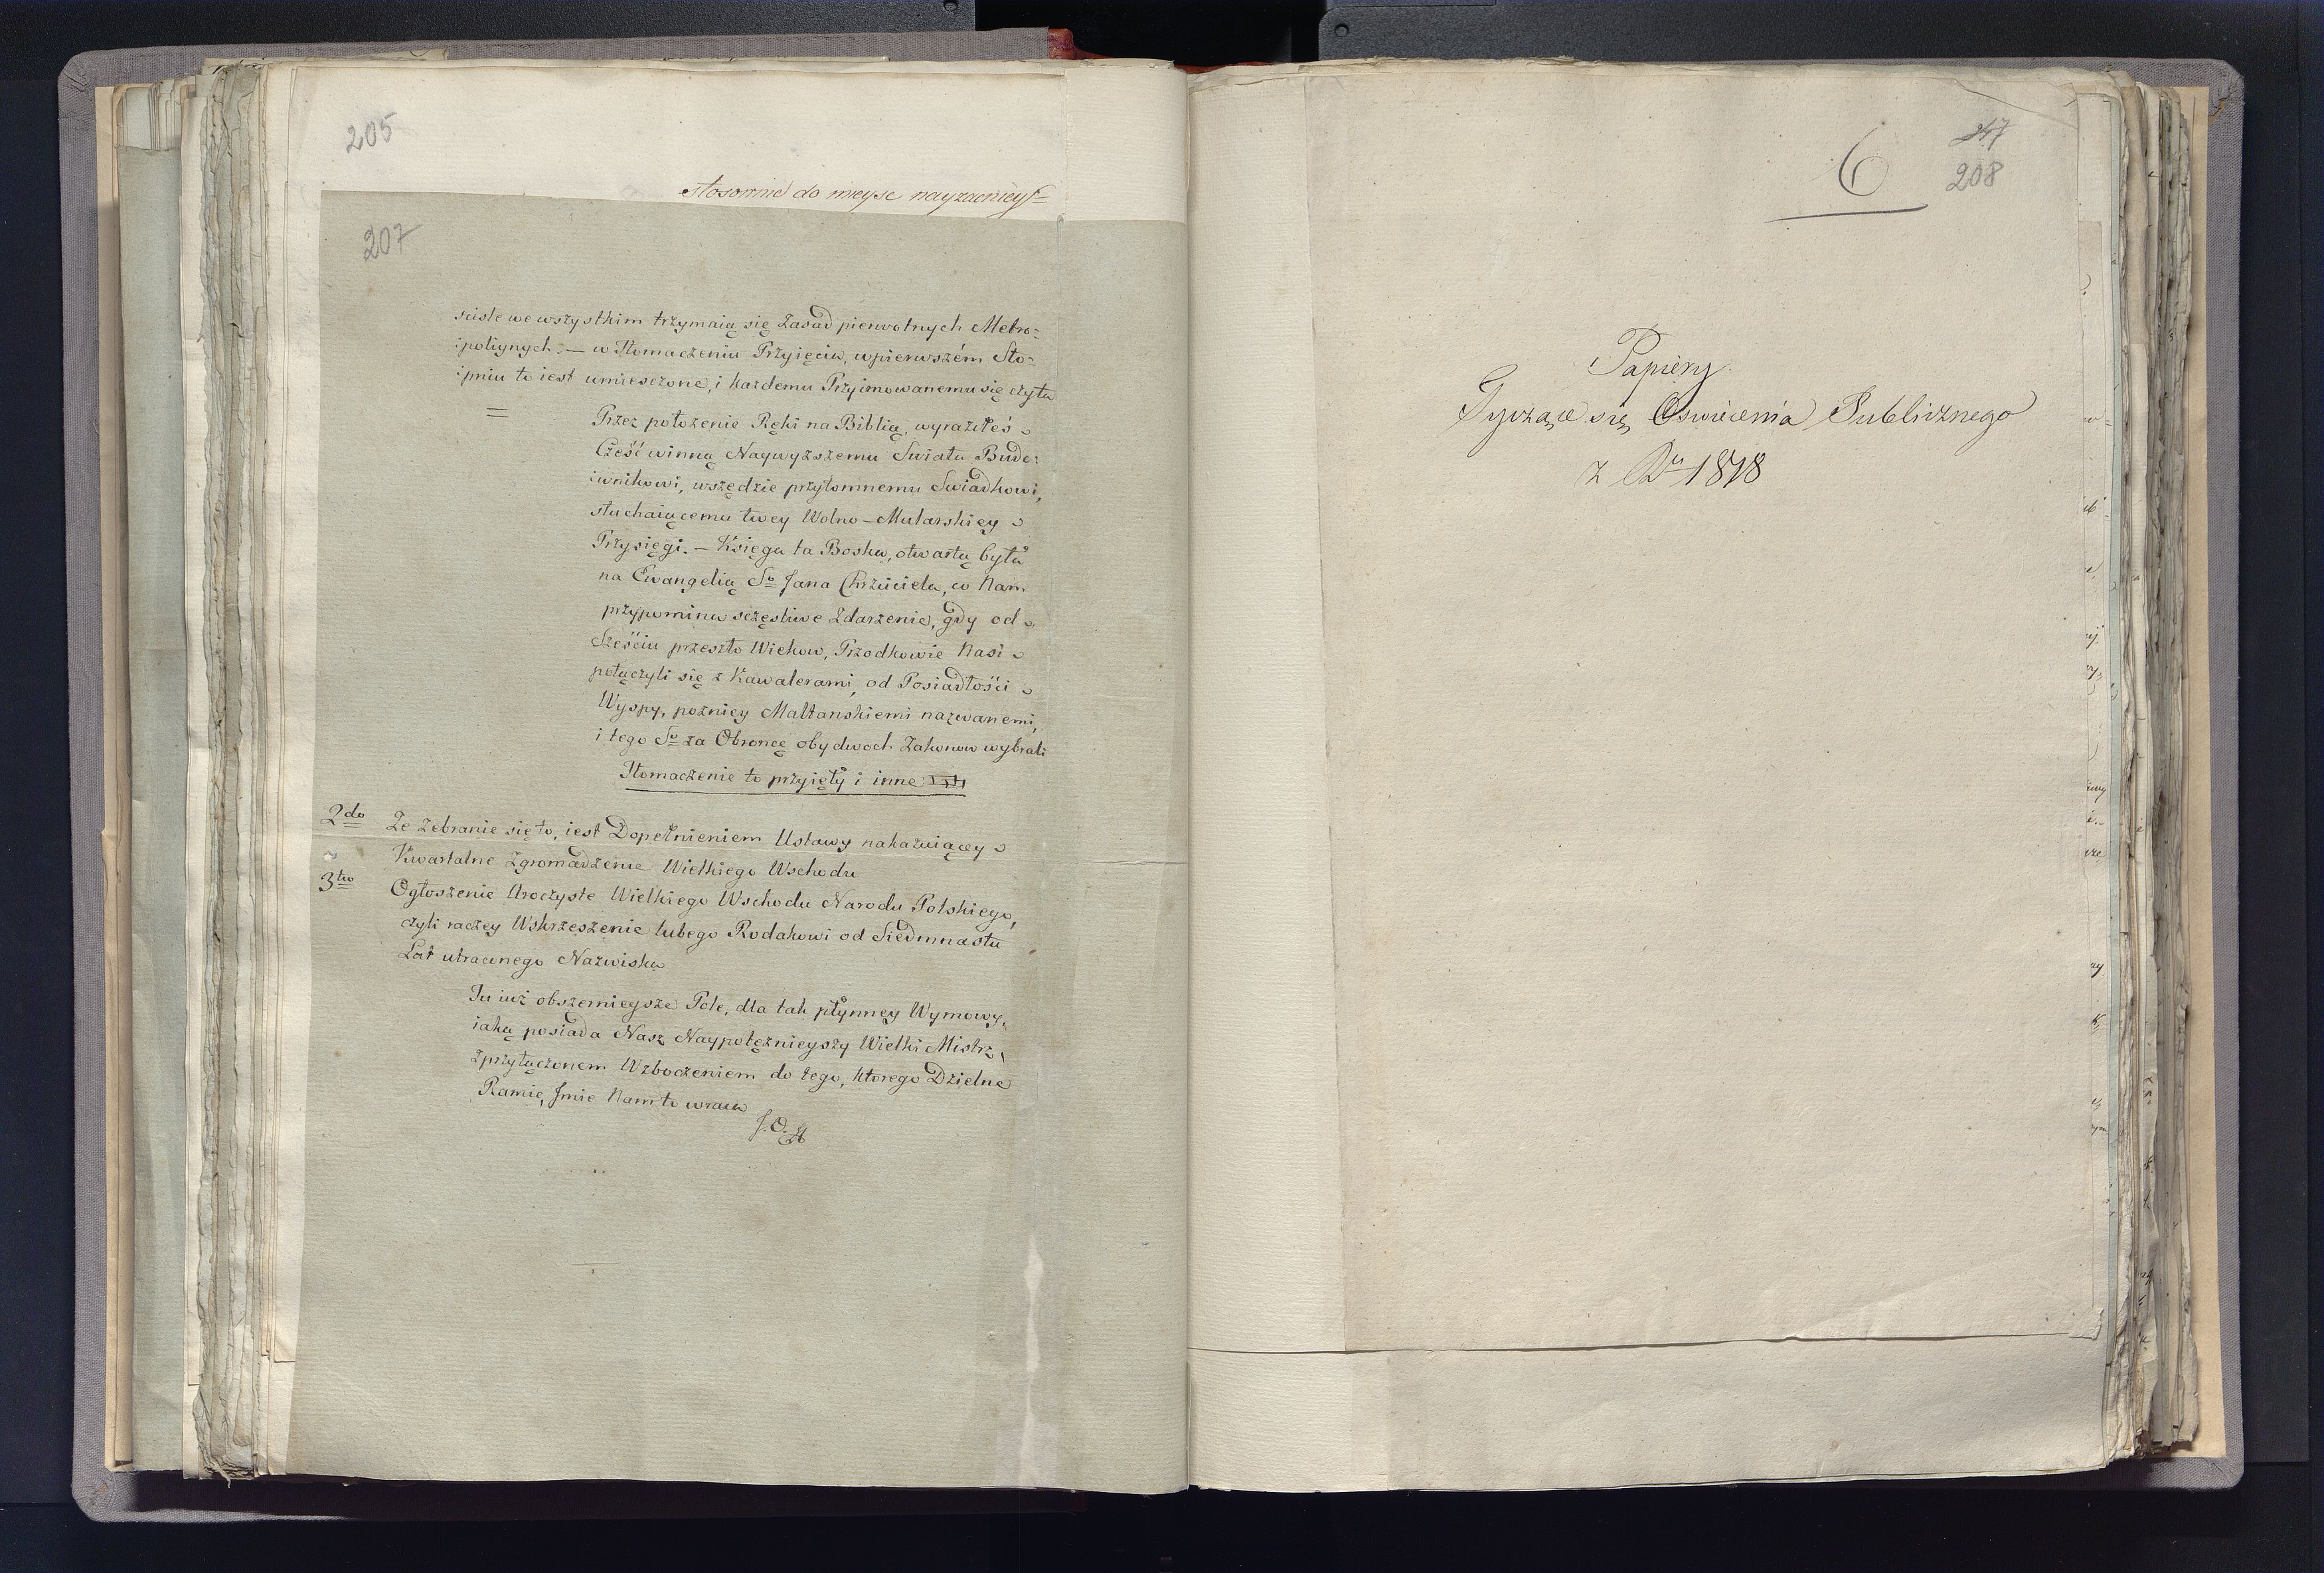 205
stosownie do mieysc nayzacnieysz=
207
scisle we wszystkim trzymaią się Zasad pierwotnych Metro=
:politynych. — w Tłomaczeniu Przyięcia, w pierwszém Sto=
:pniu to iest umiesczone, i każdemu Przyimowanemu się czyta
= Przez położenie Ręki na Biblią, wyraziłeś
Cześć winną Naywyższemu Swiata Budo=
:wnikowi, wszędzie przytomnemu Swiadkowi,
słuchaiącemu twey Wolno-Mularskiey
Przysięgi. — Księga ta Boska, otwartą była
na Ewangelią So Jana Chrzciciela, co Nam
przypomina sczęsliwe Zdarzenie, gdy od
Sześciu przeszło Wiekow, Przodkowie Nasi
połączyli się z Kawalerami, od Posiadłości
Wyspy, poźniey Maltanskiemi nazwanemi,
i tego So za Obroncę obydwoch Zakonow wybrali
Tłomaczenie to przyięły i inne
2do Ze Zebranie się to, iest Dopełnieniem Ustawy nakazuiącey
Kwartalne Zgromadzenie Wielkiego Wschodu
3tio Ogłoszenie Uroczyste Wielkiego Wschodu Narodu Polskiego,
czyli raczey Wskrzeszenie lubego Rodakowi od Siedmnastu
Lat utraconego Nazwiska
Tu iuż obszernieysze Pole, dla tak płynney Wymowy,
iaką posiada Nasz Naypotężnieyszy Wielki Mistrz,
z przyłączonem Wzboczeniem do tego, ktorego Dzielne
Ramie, Imie Nam to wraca
J.O.
6
247
208
Papiery
Tyczące się Oswiecenia Publicznego
z Ru 1818